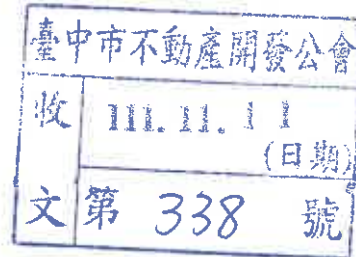 臺中市不動產開發公會
收 111. 11. 11
(日期)
文 第 338 號